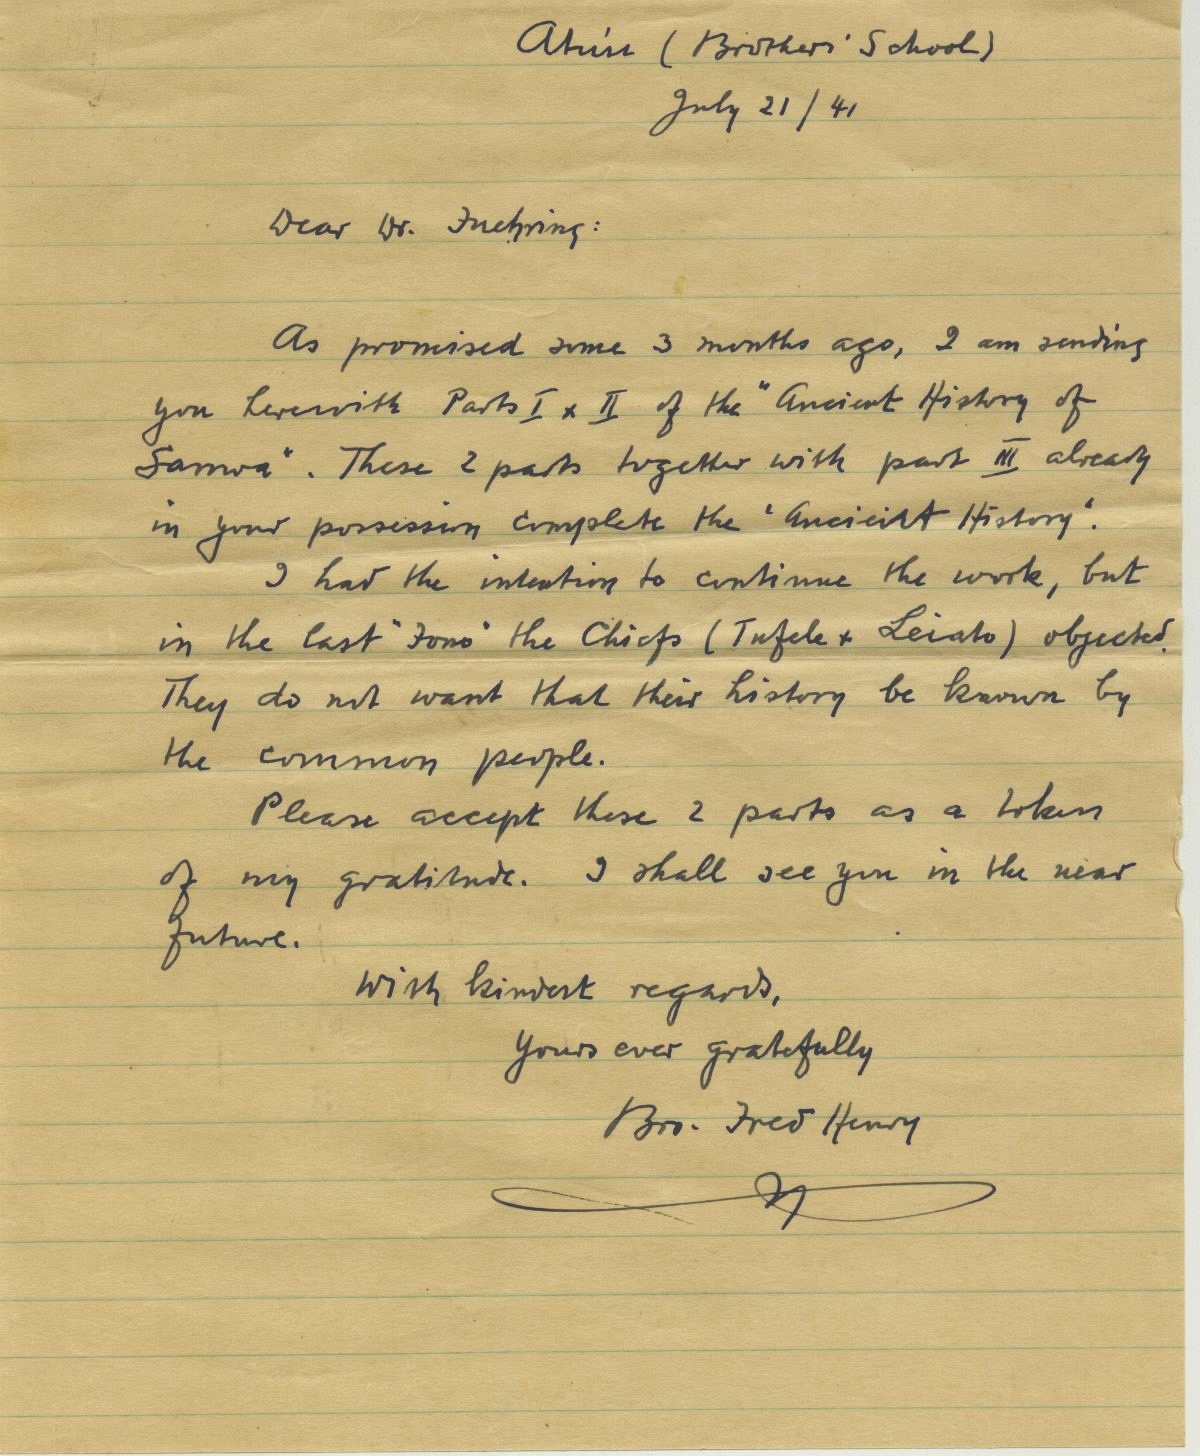 Atuu (Brothers' School)
July 21/41
Dear Dr. Fuehring:
As promised some 3 months ago, I am sending
you herewith Parts I & II of the "Ancient History of
Samoa". These 2 parts together with part III already
in your possession complete the "Ancient History".
I had the intention to continue the work, but
in the last "Fono" the Chiefs (Tufele & Leiato) objected.
They do not want that their history be known by
the common people.
Please accept these 2 parts as a token
of my gratitude. I shall see you in the near
future.
With kindest regards,
Yours ever gratefully
Bro. Fred Henry